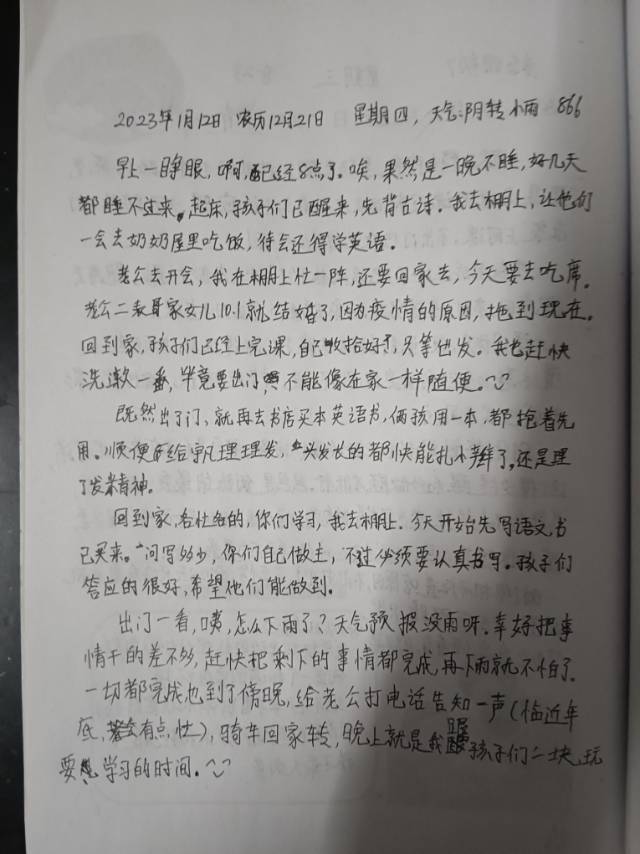 2023年1月12日 农历12月21日 星期四，天气：阴转小雨 866
早上一睁眼，啊，已经8点了。唉，果然是一晚不睡，好几天
都睡不过来。起床，孩子们已醒来，先背古诗。我去棚上，让他们
一会去奶奶屋里吃饭，待会还得学英语。
老公去开会，我在棚上忙一阵，还要回家去，今天要去吃席。
老公二表哥家女儿10.1就结婚了，因为疫情的原因，拖到现在。
回到家，孩子们已经上完课，自己收拾好了，只等出发。我也赶快
洗漱一番，毕竟要出门，不能像在家一样随便。
既然出了门，就再去书店买本英语书，俩孩用一本，都抢着先
用。顺便给凯理理发，头发长的都快能扎小辫了，还是理
了发精神。
回到家，各忙各的，你们学习，我去棚上。今天开始先写语文，书
已买来。问写多少，你们自己做主，不过必须要认真书写。孩子们
答应的很好，希望他们能做到。
出门一看，咦，怎么下雨了？天气预报没雨呀。幸好把事
情干的差不多，赶快把剩下的事情都完成，再下雨就不怕了。
一切都完成也到了傍晚，给老公打电话告知一声（临近年
底，会有点忙），骑车回家转，晚上就是我跟孩子们一块玩
耍学习的时间。